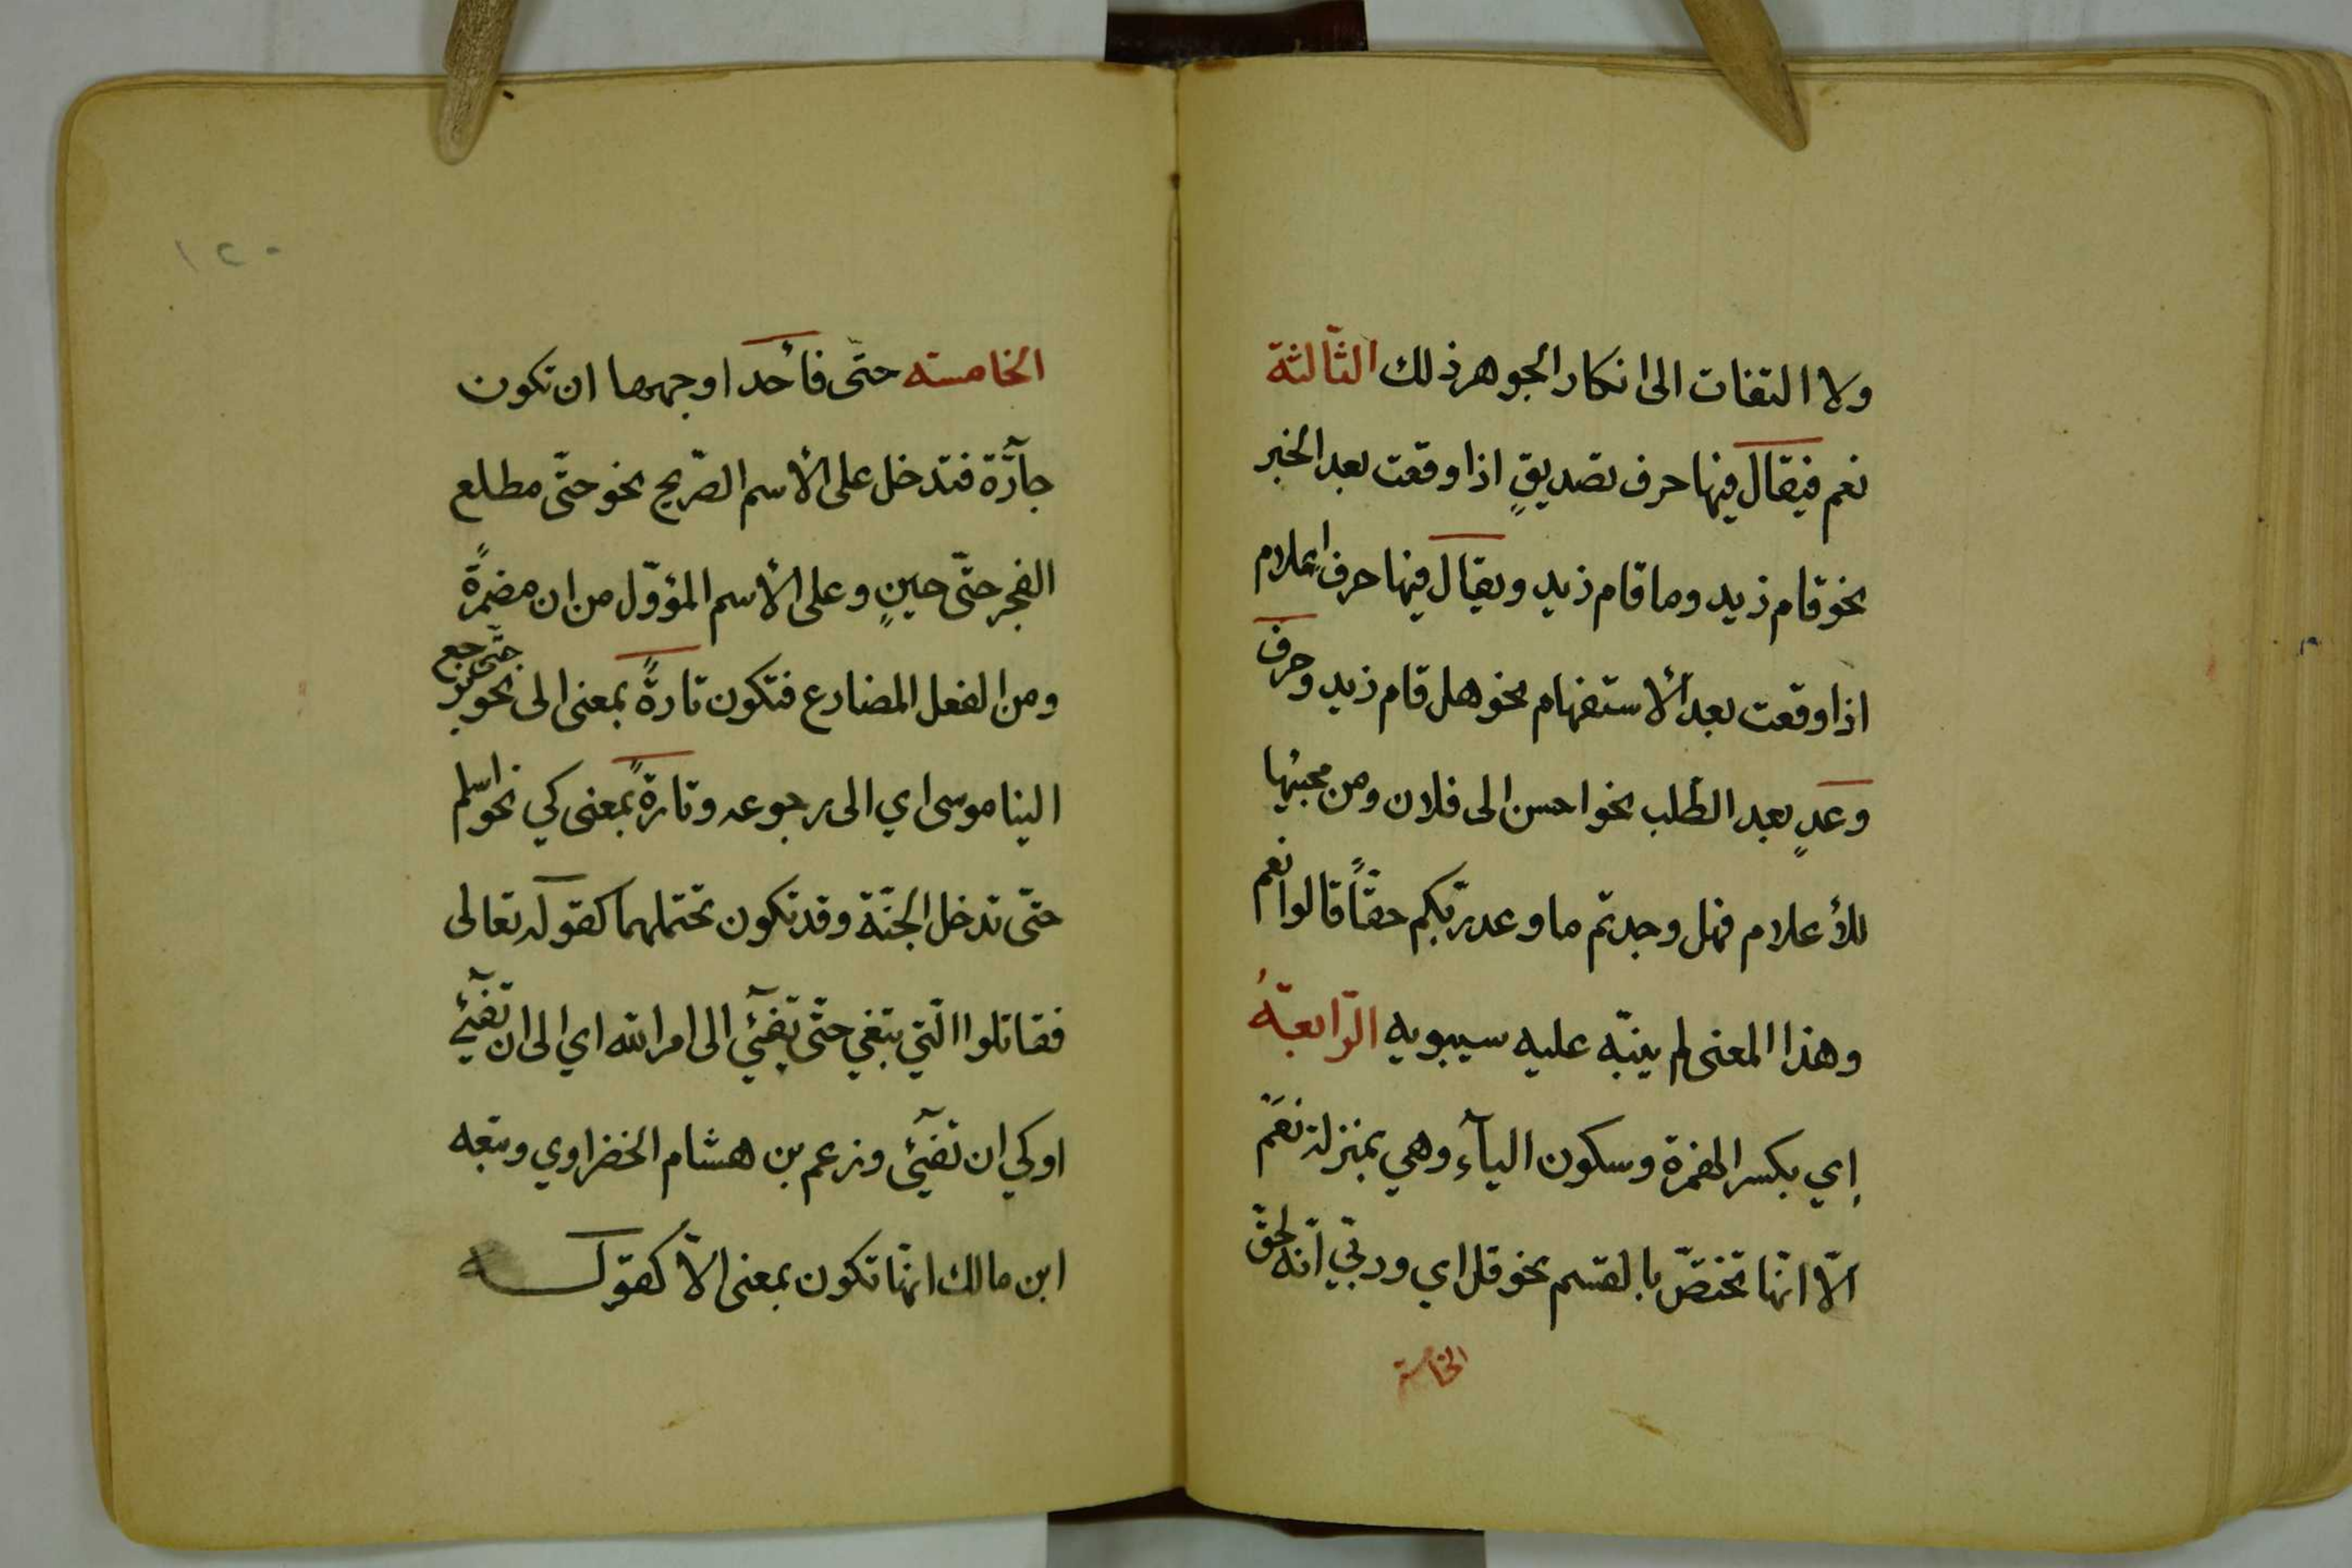 ولا التفات الى انكار الجوهر ذلك الثّالثة
نعم فيقال فيها حرف تصديقٍ اذا وقعت بعد الخبر
نحو قام زيد وما قام زيد ويقال فيها حرف اعلام
اذا وقعت بعد الأستفهام نحو هل قام زيد وحرف
وعدٍ بعد الطّلب نحو احسن الى فلان ومن مجيئها
للأعلام فهل وجدتّم ما وعد ربّكم حقّاً قالوا نعم
وهذا المعنى لم ينبّه عليه سيبويه الرّابعةُ
إي بكسر الهمزة وسكون اليآء وهي بمنزلة نعَم
الّا انّها تختصّ بالقسم نحو قل اي وربّي انّه لحقّ
الخامسة
١٢٠
الخامسة حتّى فأحد اوجهها ان تكون
جآرّة فتدخل على الأسم الصّريح نحو حتّى مطلع
الفجر حتّى حينٍ وعلى الأسم المؤوّل من ان مضمرةً
ومن الفعل المضارع فتكون تارةً بمعنى الى نحو حتّى يرجع
الينا موسى اي الى رجوعه وتارةً بمعنى كي نحو اسلم
حتّى تدخل الجنّة وقد تكون تحتملهما كقوله تعالى
فقاتلوا الّتي تبغي حتّى تفيٓئ الى امر الله اي الى ان تفيٓئ
او كي ان تفيٓئ وزعم بن هشام الخضراوي وتبعه
ابن مالك انّها تكون بمعنى الّا كقوله